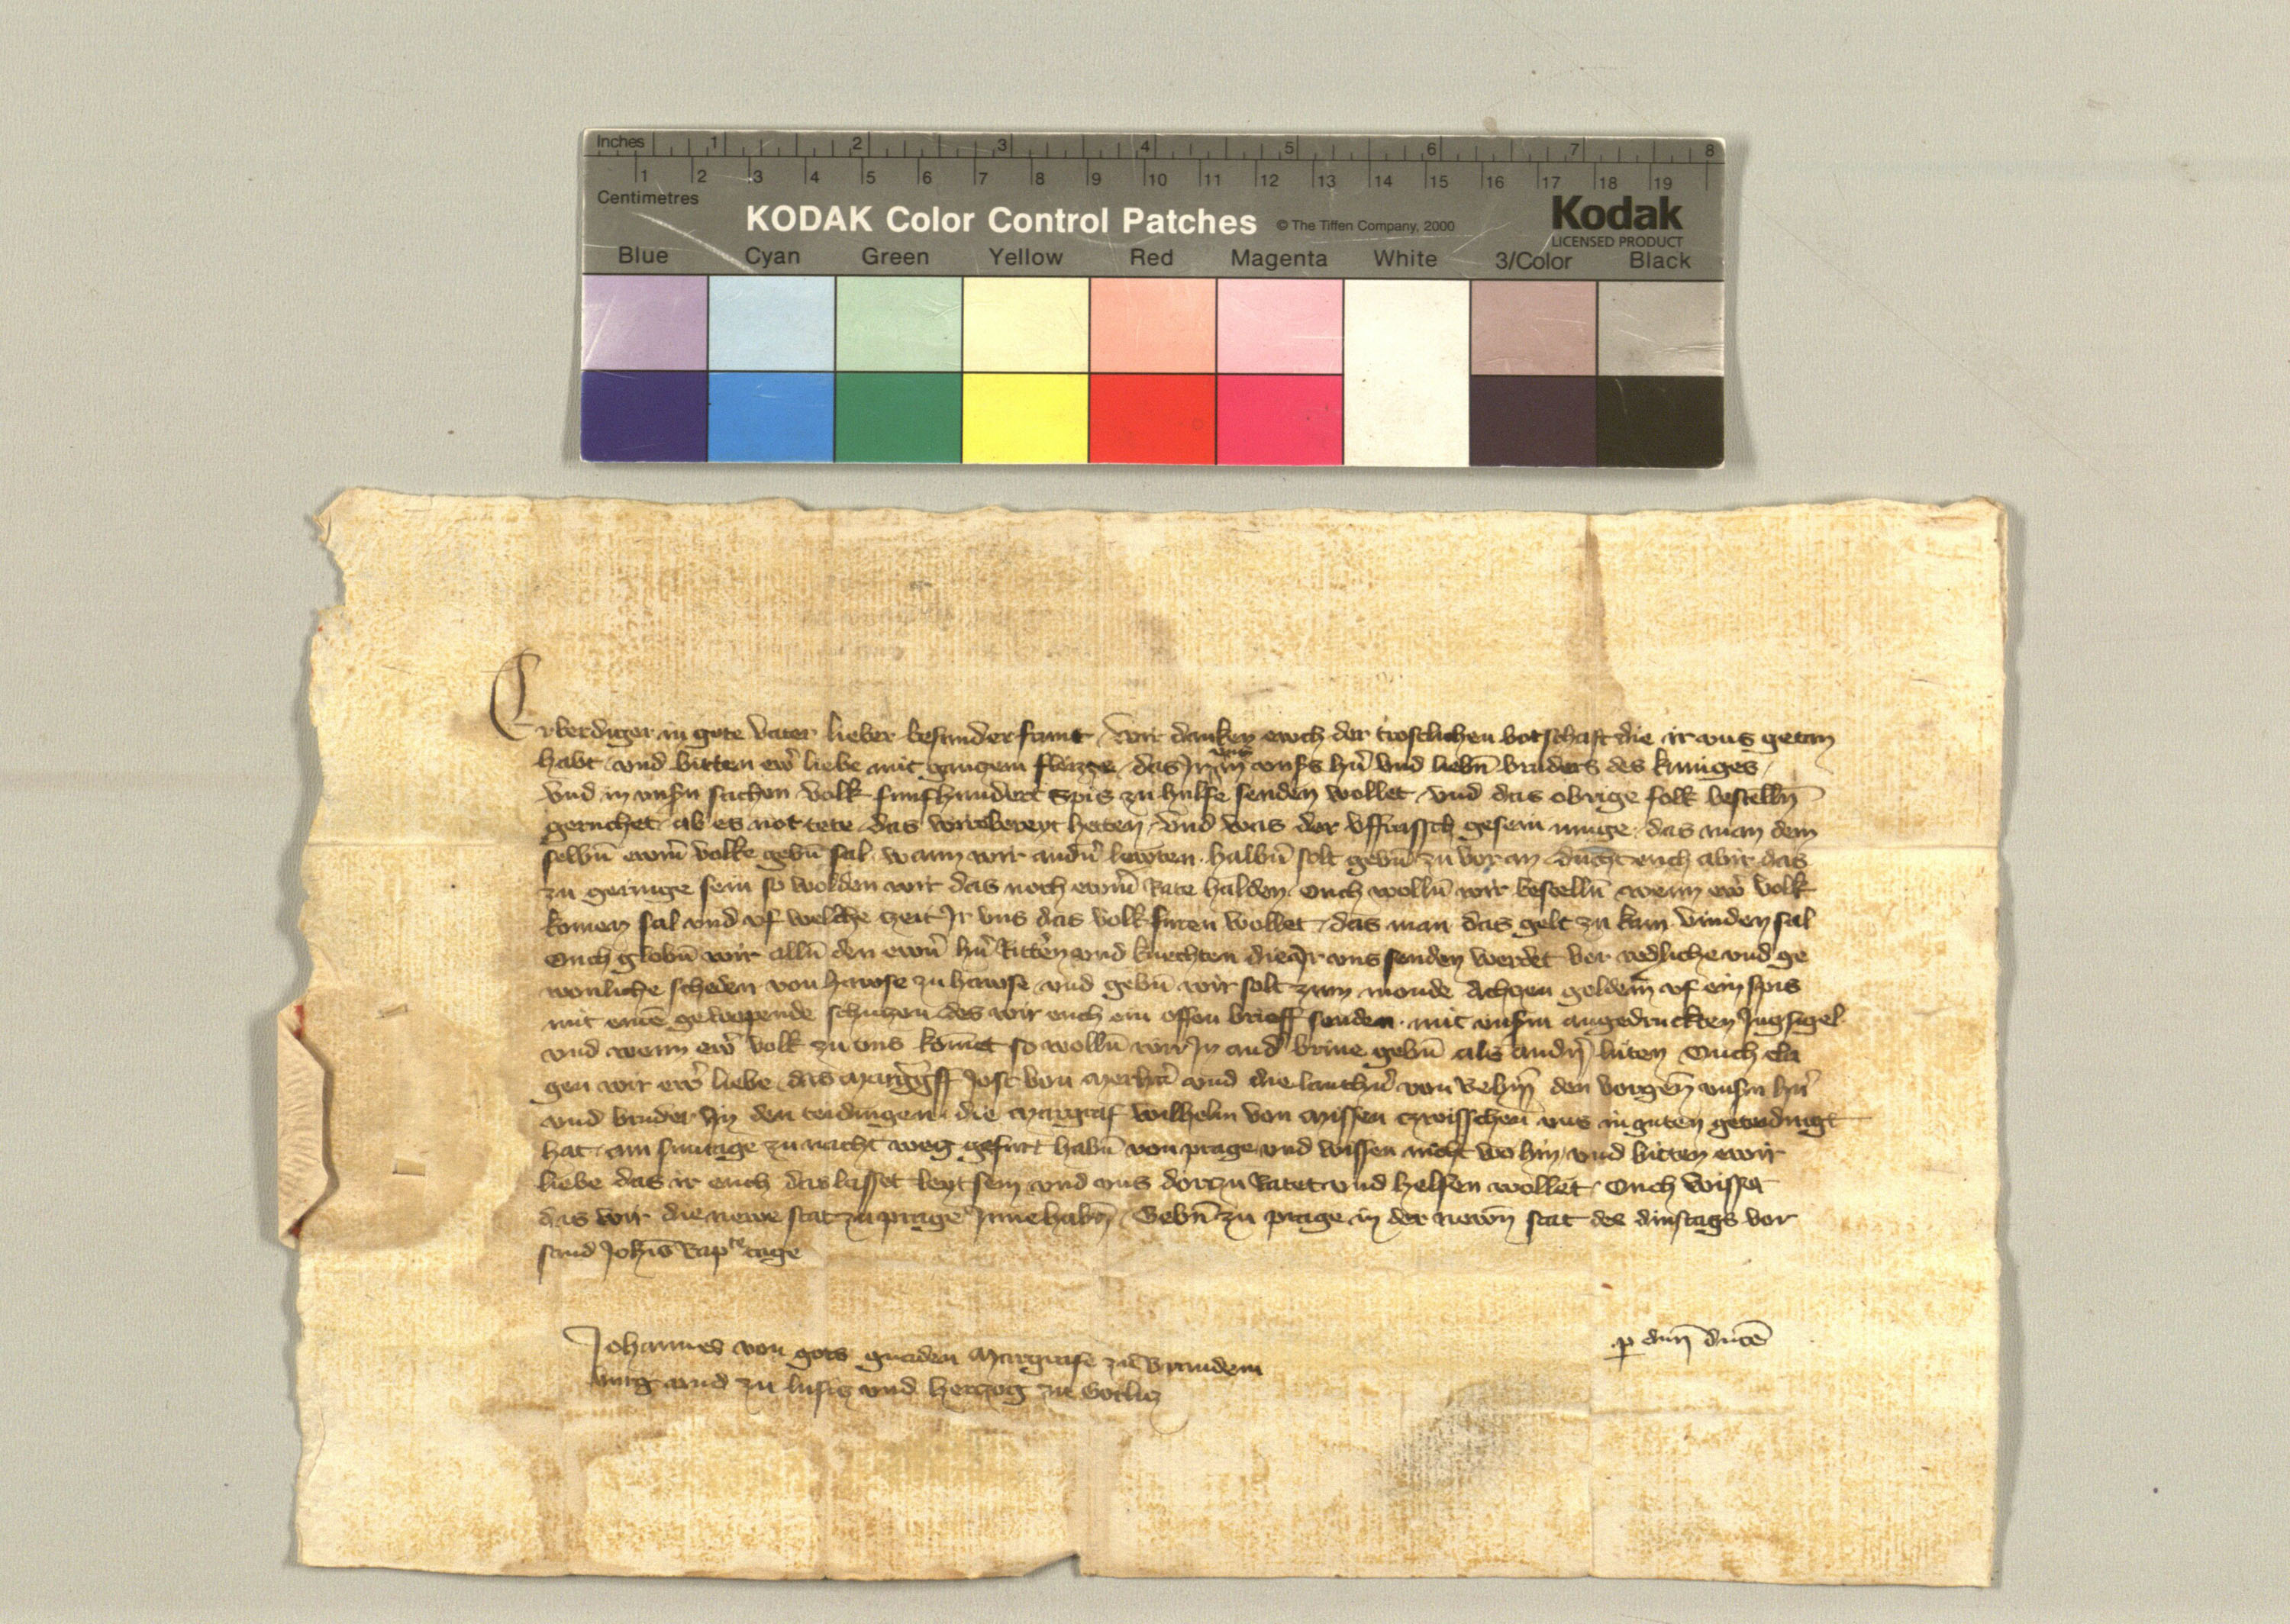 Inches 1 2 3 4 5 6 7 8
1 2 3 4 5 6 7 8 9 10 11 12 13 14 15 16 17 18 19
Centimetres
KODAK Color Control Patches © The Tiffen Company, 2000 Kodak
LICENSED PRODUCT
Blue Cyan Green Yellow Red Magenta White 3/Color Black
Erberdiger in gote vater lieber besunder frunt wir danken ewch der trostlichen botschaft die ir uns getan
habt und bitten ew̉ liebe mit ganczem flizze das Ir uns in unss hr̉ und liebn̄ bruders des kuniges
und in unsn sachen volk funfhundert spis zu hulfe senden wollet und das obrige folk bestelln̄
geruchet ab es not tete das wirs bereyt heten und was der uffrassch gesein muge das man dem
selbn̄ ewrm̄ volke gebn̄ sal wann wir andn̉ lewten halbn̄ solt gebn̄ zu vor an ducht euch abir das
zu geringe sein so wolden wir das noch ewrm̄ Rate halden Ouch wolln̄ wir bestelln̄ wenn ew̉ volk
komen sal und uf welche czeit Ir uns das volk furen wollet das man das gelt zu kam vinden sal
Ouch globn̄ wir alln̄ den ewrn̉ hr̉ Rittern und knechten die Ir uns senden werdet vor redliche und ge
wonliche scheden von hawse zu hawse und gebn̄ wir solt zum monde Achczen goldein̄ uf ein spis
mit eime gewapende schuczen des wir euch ein offen brieff senden mit unsm angedruckten Ingsigel
und wenn ew̉ volk zu uns komet so wolln̄ wir In and̉ brive gebn̄ als andn̉ luten Ouch cla
gen wir ew̉ liebe das Marggff Jost von Merhn̄ und die lanthr̉ von Behm̄ den vorgen̄ unsn hr̉
und bruder In den teidingen die Margraf Wilhelm von Missen czwisschen uns in guten geteidingt
hat am suntage zu nacht weg gefurt habn̄ von prage und wissen nicht wo hin und bitten ewir
liebe das ir euch das lasset leyt sein und uns dorczu Ratet und helfen wollet Ouch wisset
das wir die newe stat zu prage Innehabn̄ Gebn̄ zu prage in der newn̄ stat des dinstags vor
sand Johīs Bapte tage
Johannes von gots gnaden Margrafe zu Brandem
burg und zu lusicz und herczog zu Gorlicz
p dnn̄ ducē